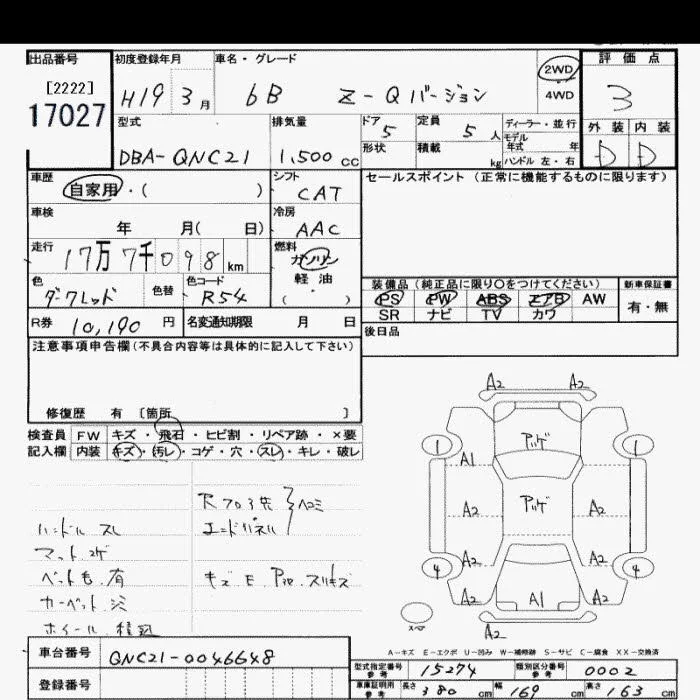 出品番号 初度登録年月 車名・グレード 2WD 評価点
[2222] H19 3月 bB Z-Qバージョン 4WD 3
17027 型式 排気量 ドア 5 定員 5人 ディーラー・並行 外装 内装
モデル
年式 年
DBA-QNC21 1,500cc 形状 積載 kg ハンドル 左・右 D D
車歴 自家用・( ) シフト CAT セールスポイント (正常に機能するものに限ります)
車検 年 月( 日) 冷房 AAC
走行 17万7千098km 燃料 ガソリン
軽油
( )
色 ダークレッド 色替 色コード R54 装備品 (純正品に限り○をつけてください) 新車保証書
PS PW ABS エアB AW 有・無
SR ナビ TV カワ
R券 10,190円 名変通知期限 月 日 後日品
注意事項申告欄(不具合内容等は具体的に記入して下さい)
修復歴 有 [箇所 ]
検査員 FW キズ・飛石・ヒビ割・リペア跡・×要
記入欄 内装 キズ・汚レ・コゲ・穴・スレ・キレ・破レ
A2 A2
1 アッゲ 1
A1
A2 アッゲ A2
A2 A2
4 4
A2 A1 A2
スペア A2
ハンドル スレ
マット コゲ
ペット毛 有
エンドパネル
カーペット シミ
A-キズ E-エクボ U-凹み W-補修跡 S-サビ C-腐食 XX-交換済
車台番号 QNC21-0046648
登録番号
型式指定番号 参考 15274 類別区分番号 参考 0002
車庫証明用 参考 長さ 380cm 幅 169cm 高さ 163cm